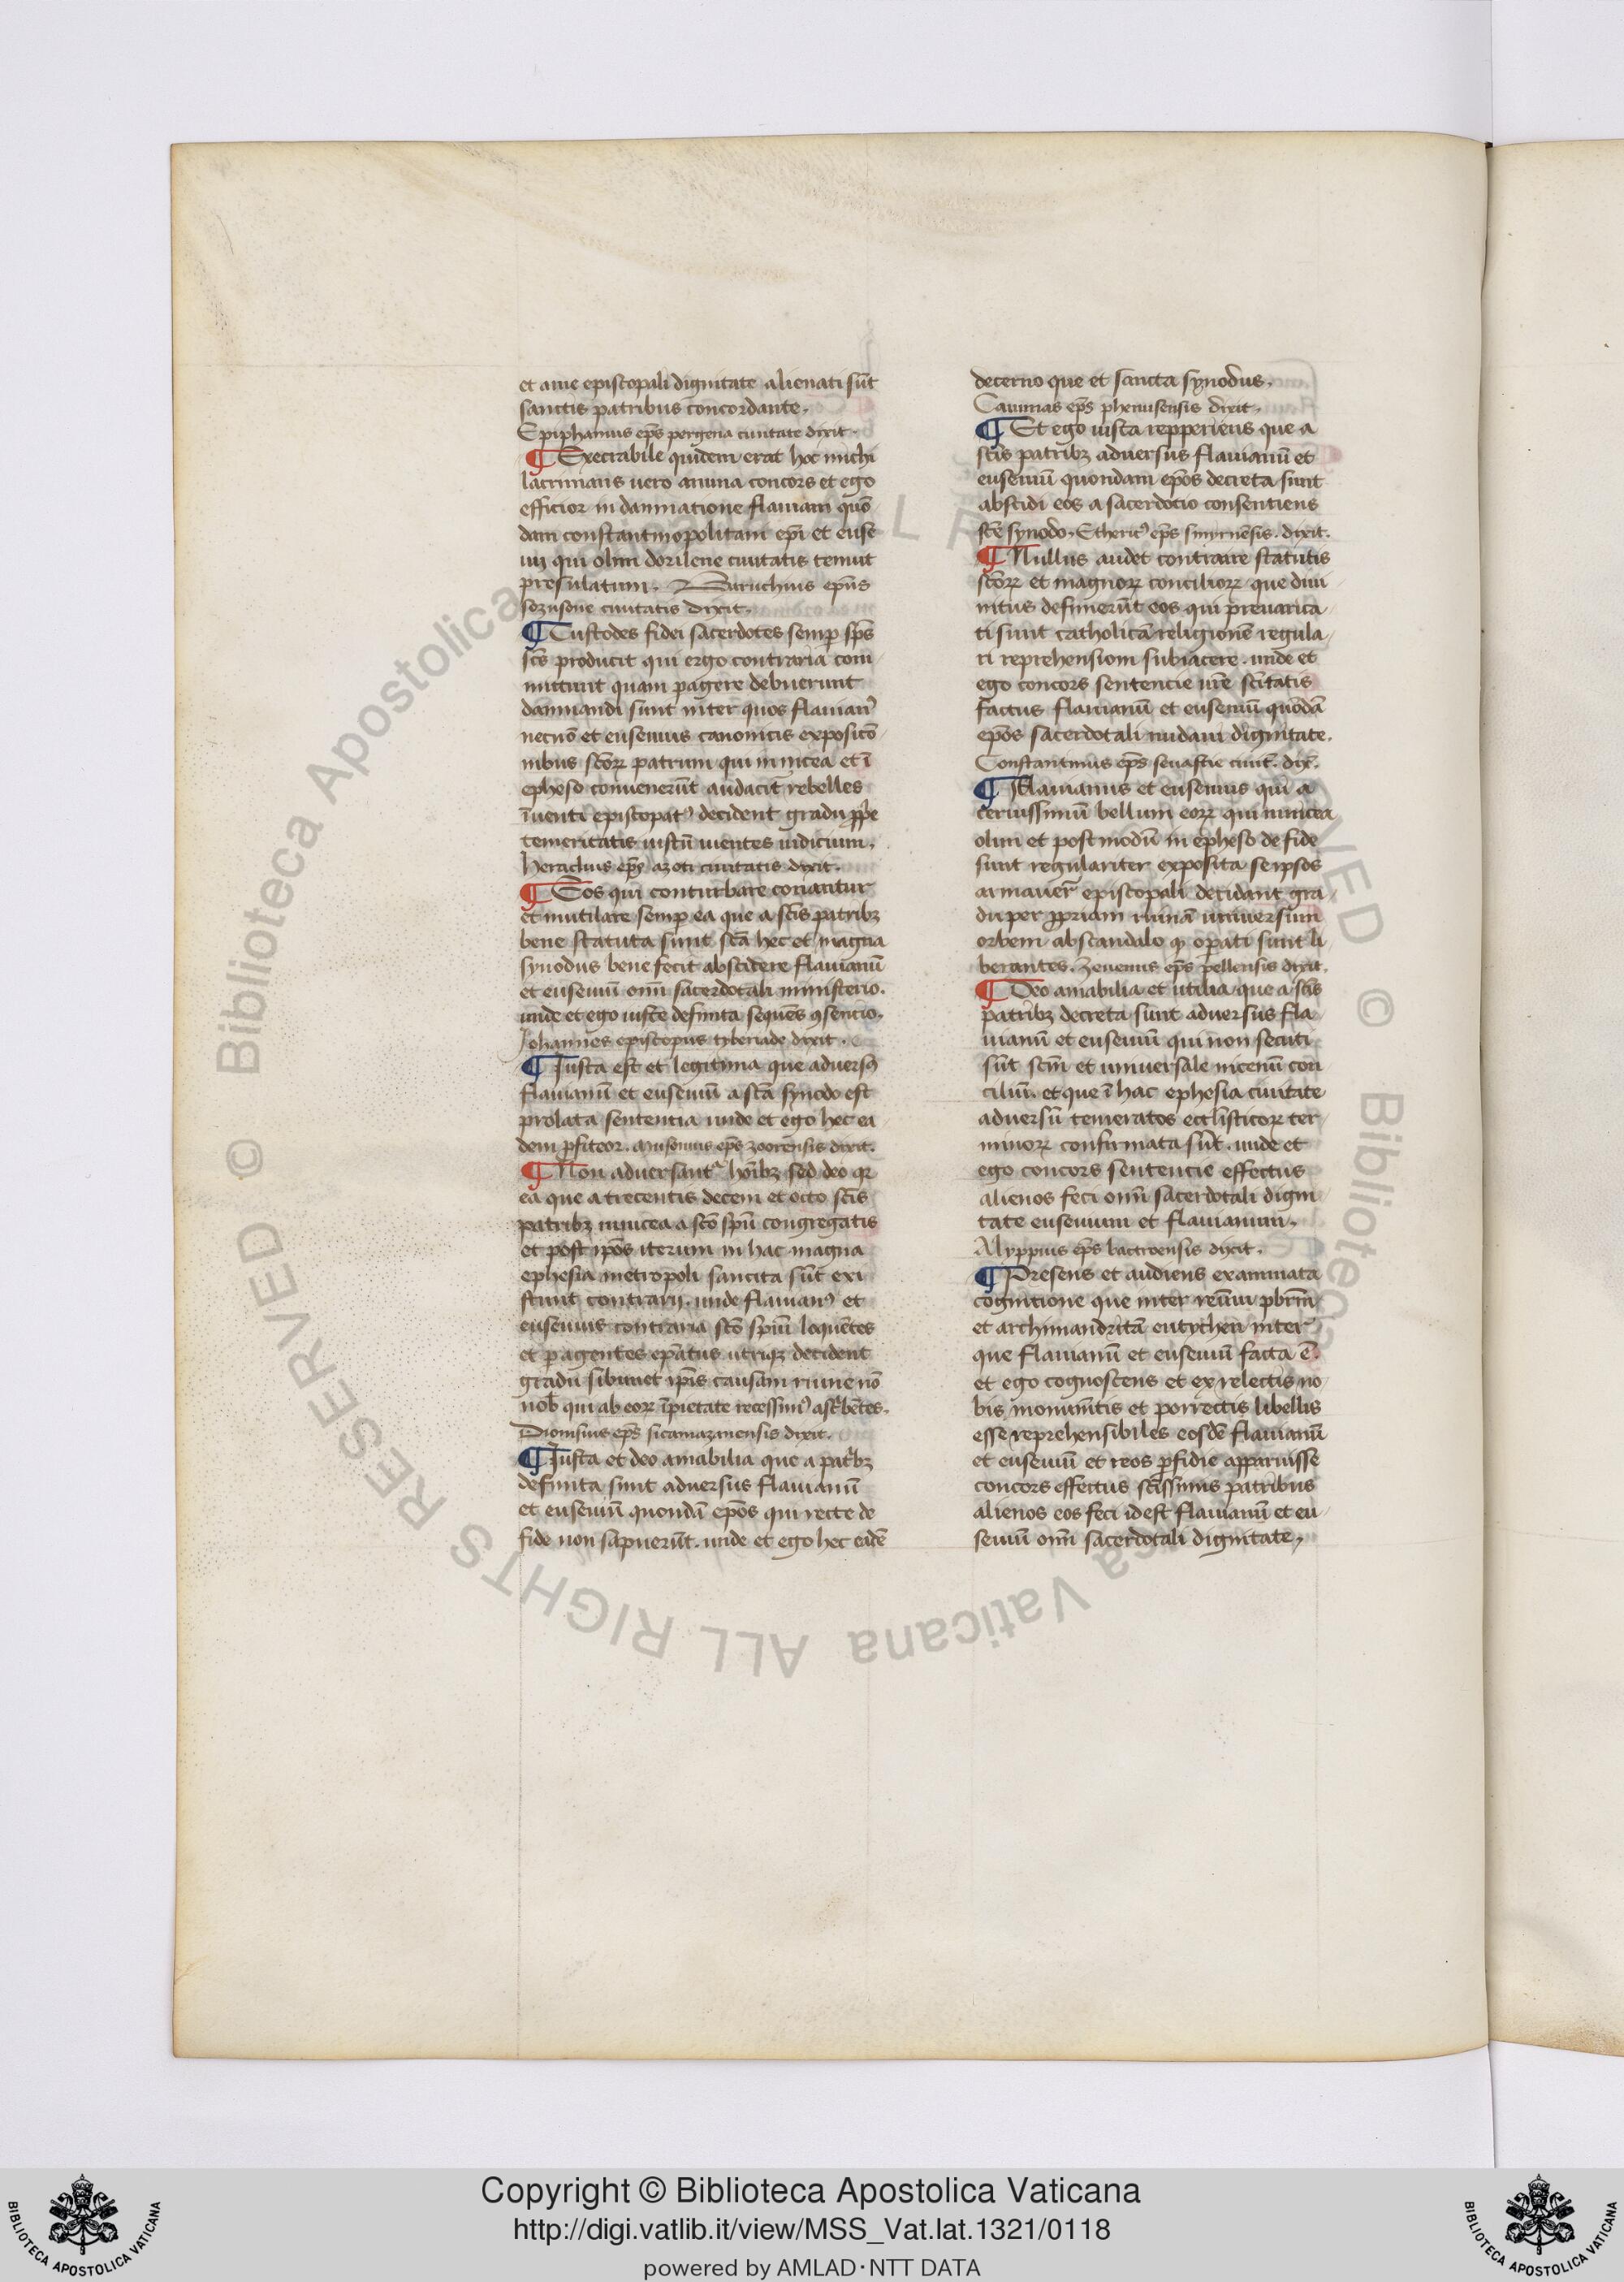 et a me episcopali dignitate alienati sũt
sanctis patribus concordante.
Epiphanius ep̃s pergena ciuitate dixit.
¶ Execrabile quidem erat hoc michi
lacrimans uero anima concors et ego
efficior in damnatione flauiani quõ
dam constantinopolitani ep̃i et euse
uij qui olim dorilene ciuitatis tenuit
presulatum. Baruchius ep̃us
sozusene ciuitatis dixit.
¶ Custodes fidei sacerdotes semp sp̃s
sc̃s producit qui ergo contraria com
mittunt quam pagere debuerunt
damnandi sunt inter quos flauianꝰ
necnõ et euseuius canonicis expositõ
nibus sc̃oꝝ patrum qui in nicea et ĩ
epheso conuenerũt audacit̃ rebelles
ĩuenti episcopatꝰ decident gradu ꝓp̃e
temeritatis iustũ uientes iudicium.
heraclius ep̃s azoti ciuitatis dixit.
¶ Eos qui conturbare conantur
et mutilare semp ea que a sc̃is patribꝫ
bene statuta sunt sc̃a hec et magna
synodus bene fecit abscidere flauianũ
et euseuiũ om̃i sacerdotali ministerio.
unde et ego iuste definita sequẽs ꝯsentio.
Johannes episcopus tyberiade dixit.
¶ Iusta est et legitima que aduersꝰ
flauianũ et euseuiũ a sc̃a synodo est
prolata sentencia unde et ego hec ea
dem ꝓfiteor. ausonius ep̃s zoorensis dixit.
¶ Non aduersantᷣ hoĩbꝫ sed deo qꝛ
ea que a trecentis decem et octo sc̃is
patribꝫ in nicea a sc̃o sp̃u congregatis
et post ip̃os iterum in hac magna
ephesia metropoli sancita sũt exi
stunt contrarij. unde flauianꝰ et
euseuius contraria sc̃o sp̃ui loquẽtes
et pagentes ep̃atus utriqꝫ decident
gradu sibimet ip̃is causam ruine nõ
nob̃ qui ab eoꝝ ĩpietate recessimꝰ asc̃bẽtes.
Dionisius ep̃s sicamazinensis dixit.
¶ Iusta et deo amabilia que a pat̃bꝫ
definita sunt aduersus flauianũ
et euseuiũ quondã ep̃os qui recte de
fide non sapuerũt. unde et ego hec eadẽ
decerno que et sancta synodus.
Caiumas ep̃s phenusensis dixit.
¶ Et ego iusta repperiens que a
sc̃is patribꝫ aduersus flauianũ et
euseuiũ quondam ep̃os decreta sunt
abscidi eos a sacerdocio consentiens
sc̃e synodo. Ethericꝰ ep̃s smyrnẽsis. dixit.
¶ Nullus audet contraire statutis
sc̃oꝝ et magnoꝝ concilioꝝ que diui
nitus definierũt eos qui preuarica
ti sunt catholicã religionẽ regula
ri reprehensioni subiacere. unde et
ego concors sentencie ur̃e sc̃itatis
factus flauianũ et euseuiũ quõdã
ep̃os sacerdotali nudaui dignitate.
Constantinus ep̃s seuastie ciuit̃. dix̃.
¶ Flauianus et euseuius qui a
ceruissimũ bellum eoꝝ qui in nicea
olim et post modũ in epheso de fide
sunt regulariter exposita se ip̃sos
armauer̃ episcopali decidant gra
du per ꝓpriam ruinã uniuersum
orbem ab scandalo qꝫ opati sunt li
berantes. Zeuenus ep̃s pellensis dixit.
¶ Deo amabilia et utilia que a sc̃is
patribꝫ decreta sunt aduersus fla
uianũ et euseuiũ qui non secuti
sũt sc̃m et uniuersale nicenũ con
ciliũ. et que ĩ hac ephesia ciuitate
aduersũ temeratos eccl̃isticoꝝ ter
minoꝝ confirmata sũt. unde et
ego concors sentencie effectus
alienos feci om̃i sacerdotali digni
tate euseuium et flauianum.
Alyppius ep̃s bactroensis dixit.
¶ Presens et audiens examinata
cognitione que inter reũm p̃brm̃
et archimandritã eutychen inter
que flauianũ et euseuiũ facta ẽ.
et ego cognoscens et ex relectis no
bis monum̃tis et porrectis libellis
esse reprehensibiles eosdẽ flauianũ
et euseuiũ et reos pfidie apparuisse
concors effectus sc̃issimis patribus
alienos eos feci id est flauianũ et eu
seuiũ om̃i sacerdotali dignitate.
Copyright © Biblioteca Apostolica Vaticana
http://digi.vatlib.it/view/MSS_Vat.lat.1321/0118
powered by AMLAD·NTT DATA